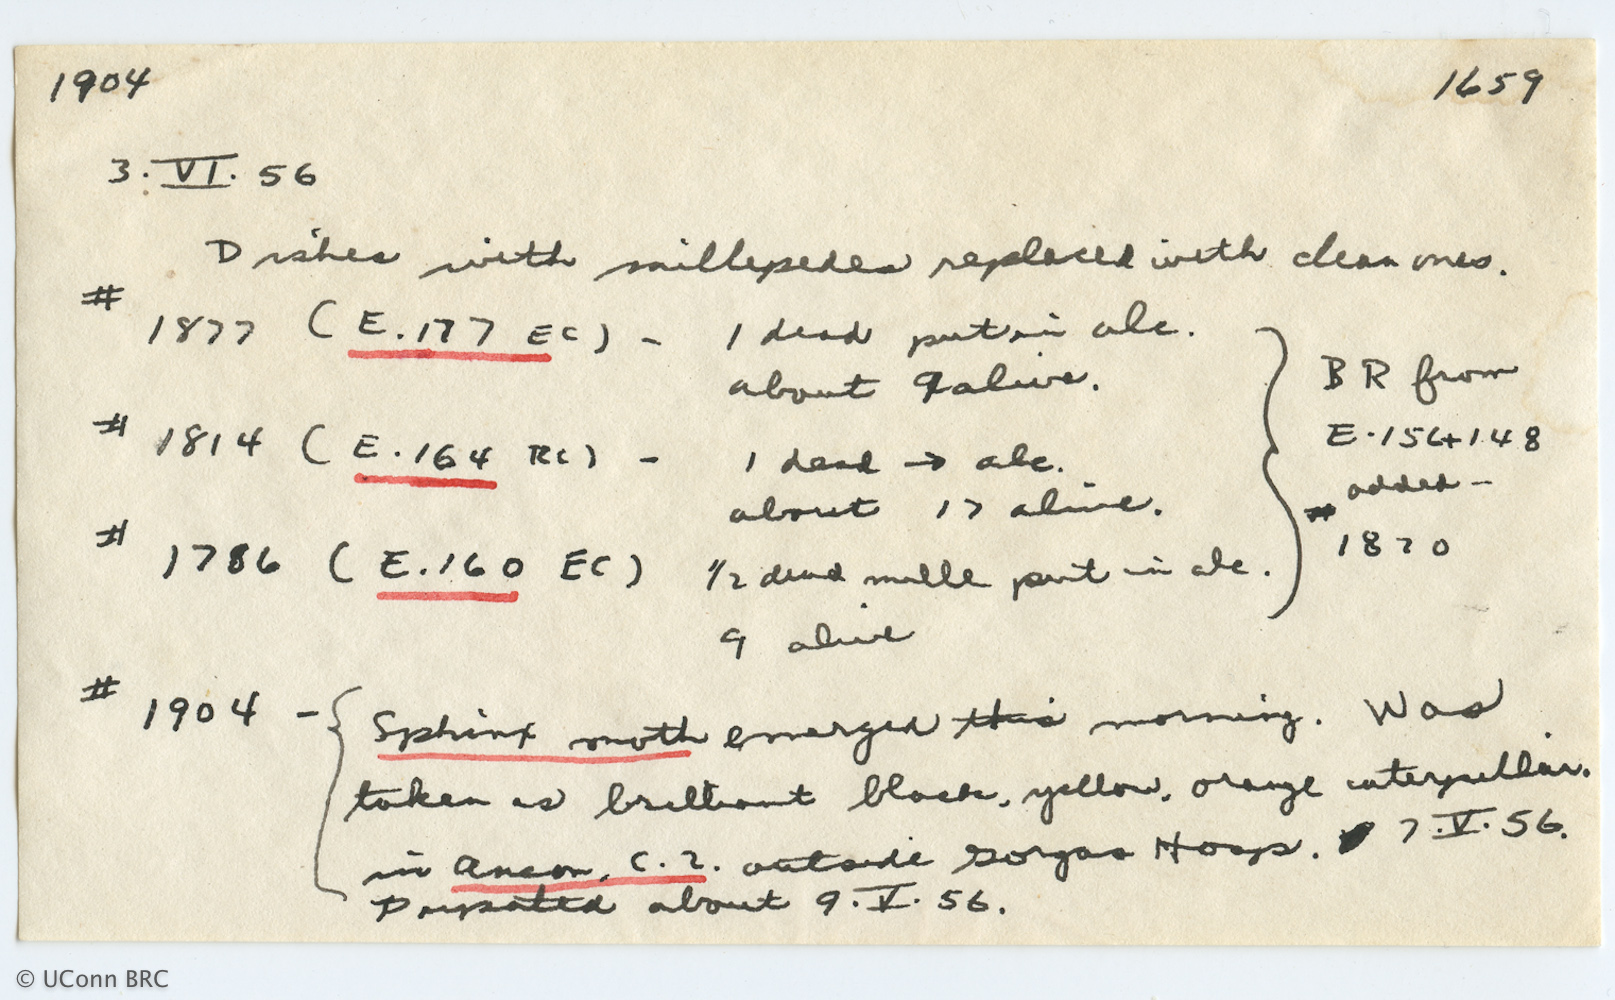 1904 1659
3.VI.56
Dishes with millepedes replaced with clean ones.
# 1877 (E.177 EC) - 1 dead put in alc.
about 9 alive.
# 1814 (E.164 RC) - 1 dead → alc.
about 17 alive.
# 1786 (E.160 EC) 1/2 dead mille put in alc.
9 alive
BR from
E.156+148
added -
# 1870
# 1904 - Sphinx moth emerged this morning. Was
taken as brilliant black, yellow, orange caterpillar.
in Ancon, C.Z. outside Gorgas Hosp. 7.V.56.
Pupated about 9.V.56.
© UConn BRC